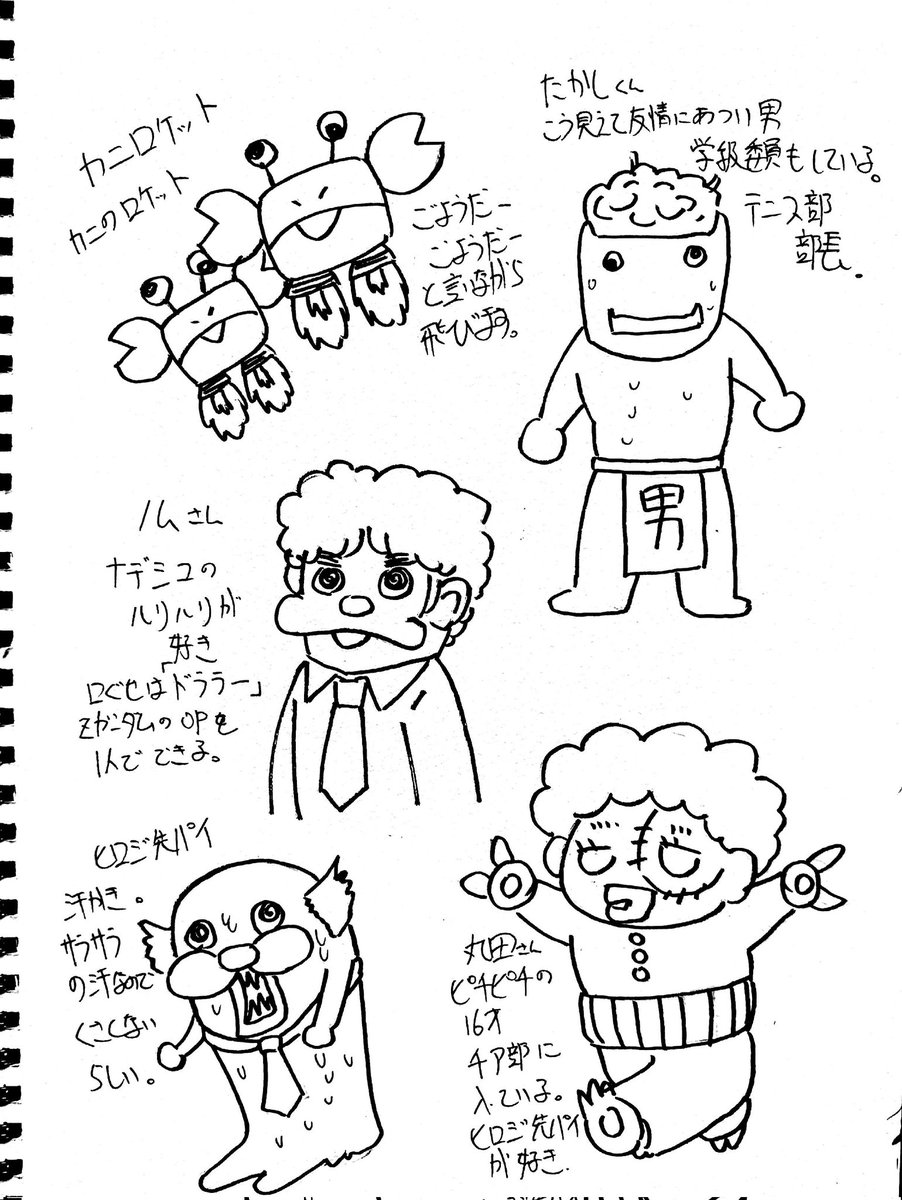 カニロケット
カニのロケット
ごようだー
ごようだー
と言いながら
飛びます。
たかしくん
こう見えて友情にあつい男
学級委員もしている。
テニス部
部長.
男
ノムさん
ナデシコの
ルリルリが
好き
口ぐせは「ドララー」
Zガンダムの OPを
1人で できる。
ヒロジ先パイ
汗かき。
サラサラ
の汗なので
くさくない
らしい。
丸田さん
ピチピチの
16才
チア部に
入ている。
ヒロジ先パイ
が好き.